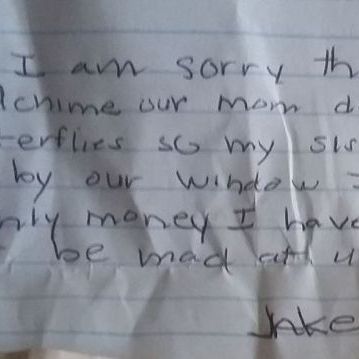 I am sorry th
chime our mom d
erflies so my sis
by our window
nly money I have
be mad at u
Jake